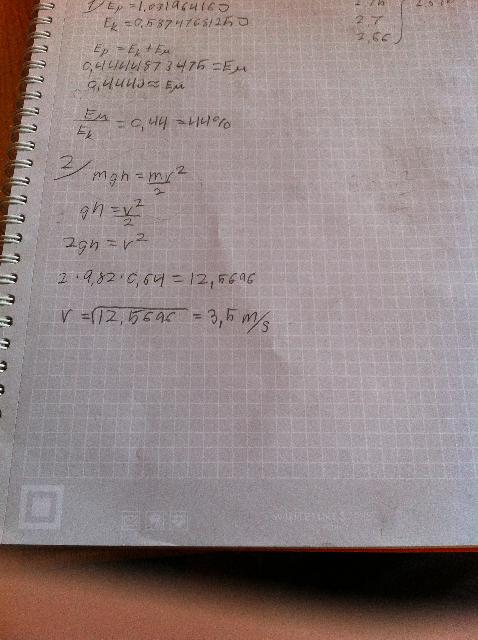 1) Ep = 1,031964160
2,7
Ek = 0,58747681250
2,66
Ep = Ek + Eμ
0,4444873475 = Eμ
0,4440 ≈ Eμ
Eμ/Ek = 0,44 = 44%
2/ mgh = mv²/2
gh = v²/2
2gh = v²
2 · 9,82 · 0,64 = 12,5696
v = √12,5696 = 3,5 m/s